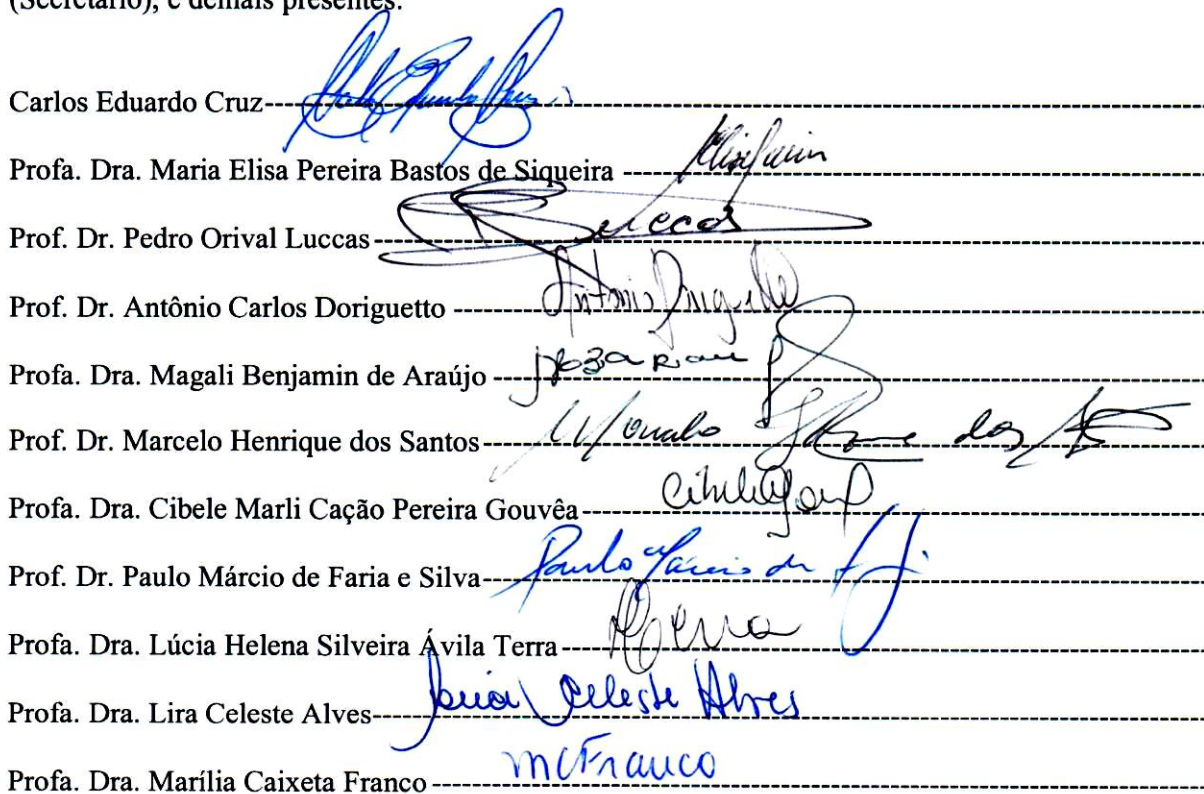 (Secretário), e demais presentes.
Carlos Eduardo Cruz
Profa. Dra. Maria Elisa Pereira Bastos de Siqueira
Prof. Dr. Pedro Orival Luccas Luccas
Prof. Dr. Antônio Carlos Doriguetto Antonio
Profa. Dra. Magali Benjamin de Araújo
Prof. Dr. Marcelo Henrique dos Santos dos
Profa. Dra. Cibele Marli Cação Pereira Gouvêa
Prof. Dr. Paulo Márcio de Faria e Silva Paulo Márcio de
Profa. Dra. Lúcia Helena Silveira Ávila Terra
Profa. Dra. Lira Celeste Alves Celeste Alves
Profa. Dra. Marília Caixeta Franco MCFranco